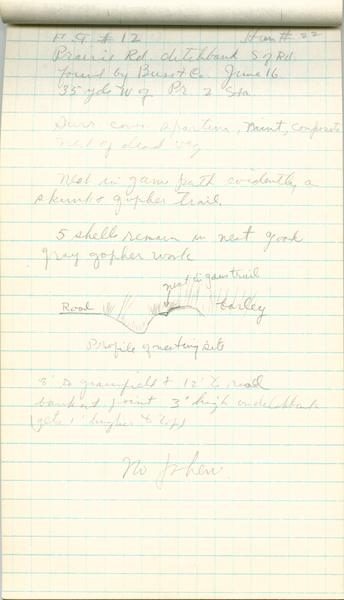 # 12
Prairie Rd. ditchbank S of Rd.
found by Buss & Co. June 16
35 yds W of Pr 2 Sta
cover spartina, mint, composite
nest of dead veg
Nest in game path evidently a
skunk & gopher trail.
5 shells remain in nest good
gray gopher work
nest in game trail
Road
barley
Profile of nesting site
to grainfield & 12' to road
point 3' high on ditchbank
(gets 1' higher to top)
No